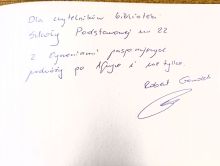 Dla czytelników biblioteki
Szkoły Podstawowej nr 22
z życzeniami pasjonujących
podróży po Afryce i nie tylko.
Robert